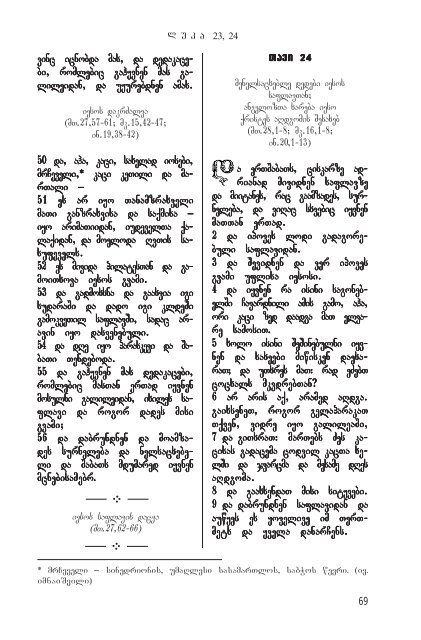 ლ უ კ ა 23, 24
ვინც იცნობდა მას, და დედაკაცე-
ბი, რომლებიც გაჰყვნენ მას გა-
ლილეიდან, და უყურებდნენ ამას.
იესოს დაკრძალვა
(მთ.27,57-61; მკ.15,42-47;
ინ.19,38-42)
50 და, აჰა, კაცი, სახელად იოსები,
მრჩეველი,* კაცი კეთილი და მარ-
თალი –
51 ეს არ იყო თანამზრახველი
მათი განზრახვისა და საქმისა –
იყო არიმათიიდან, იუდეველთა ქა-
ლაქიდან, და მოელოდა ღვთის სა-
სუფეველს.
52 ეს მივიდა პილატესთან და გა-
მოითხოვა იესოს გვამი.
53 და გადმოხსნა და გაახვია იგი
სუდარაში და დადო იგი კლდეში
გამოკვეთილ საფლავში, სადაც არ-
ავინ იყო დასვენებული.
54 და დღე იყო პარასკევი და შა-
ბათი თენდებოდა.
55 და გაჰყვნენ მას დედაკაცები,
რომლებიც მასთან ერთად იყვნენ
მოსულნი გალილეიდან, იხილეს სა-
ფლავი და როგორ დადეს მისი
გვამი;
56 და დაბრუნდნენ და მოამზა-
დეს სურნელება და ნელსაცხებე-
ლი და შაბათს მდუმარედ იყვნენ
მცნებისამებრ.
იესოს საფლავის დაცვა
(მთ.27,62-66)
თავი 24
მენელსაცხებლე დედები იესოს
საფლავთან;
ანგელოზთა ხარება იესო
ქრისტეს აღდგომის შესახებ
(მთ.28,1-8; მკ.16,1-8;
ინ.20,1-13)
და ერთშაბათს, ცისკარზე ად-
რიანად მივიდნენ საფლავზე
და მიიტანეს, რაც გაამზადეს, სურ-
ნელება, და ვიღაც სხვებიც იყვნენ
მათთან ერთად.
2 და იპოვეს ლოდი გადაგორე-
ბული საფლავიდან.
3 და შევიდნენ და ვერ იპოვეს
გვამი უფლისა იესოსი.
4 და იყვნენ რა ისინი საგონებ-
ელში ჩავარდნილი ამის გამო, აჰა,
ორი კაცი ზედ დაადგა მათ ელვა-
რე სამოსით.
5 ხოლო ისინი შეშინებულნი იყვ-
ნენ და სახეები მიწისკენ დაეხა-
რათ; და უთხრეს მათ: რად ეძებთ
ცოცხალს მკვდრებთან?
6 არ არის აქ, არამედ აღდგა.
გაიხსენეთ, როგორ გელაპარაკათ
თქვენ, ვიდრე იყო გალილეაში,
7 და გითხრათ: მართებს ძეს კა-
ცისას გადაცემა ცოდვილ კაცთა ხე-
ლში და ჯვარცმა და მესამე დღეს
აღდგომა.
8 და გაახსენდათ მისი სიტყვები.
9 და დაბრუნდნენ საფლავიდან და
აუწყეს ეს ყოველივე იმ თერთ-
მეტს და ყველა დანარჩენს.
* მრჩეველი – სინედრიონის, უმაღლესი სასამართლოს, საბჭოს წევრი. (იე.
იმნაიშვილი)
69